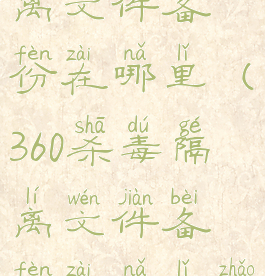 离文件备
fèn zài nǎ lǐ
份在哪里（
shā dú gé
360杀毒隔
lí wén jiàn bèi
离文件备
fèn zài nǎ lǐ zhǎo